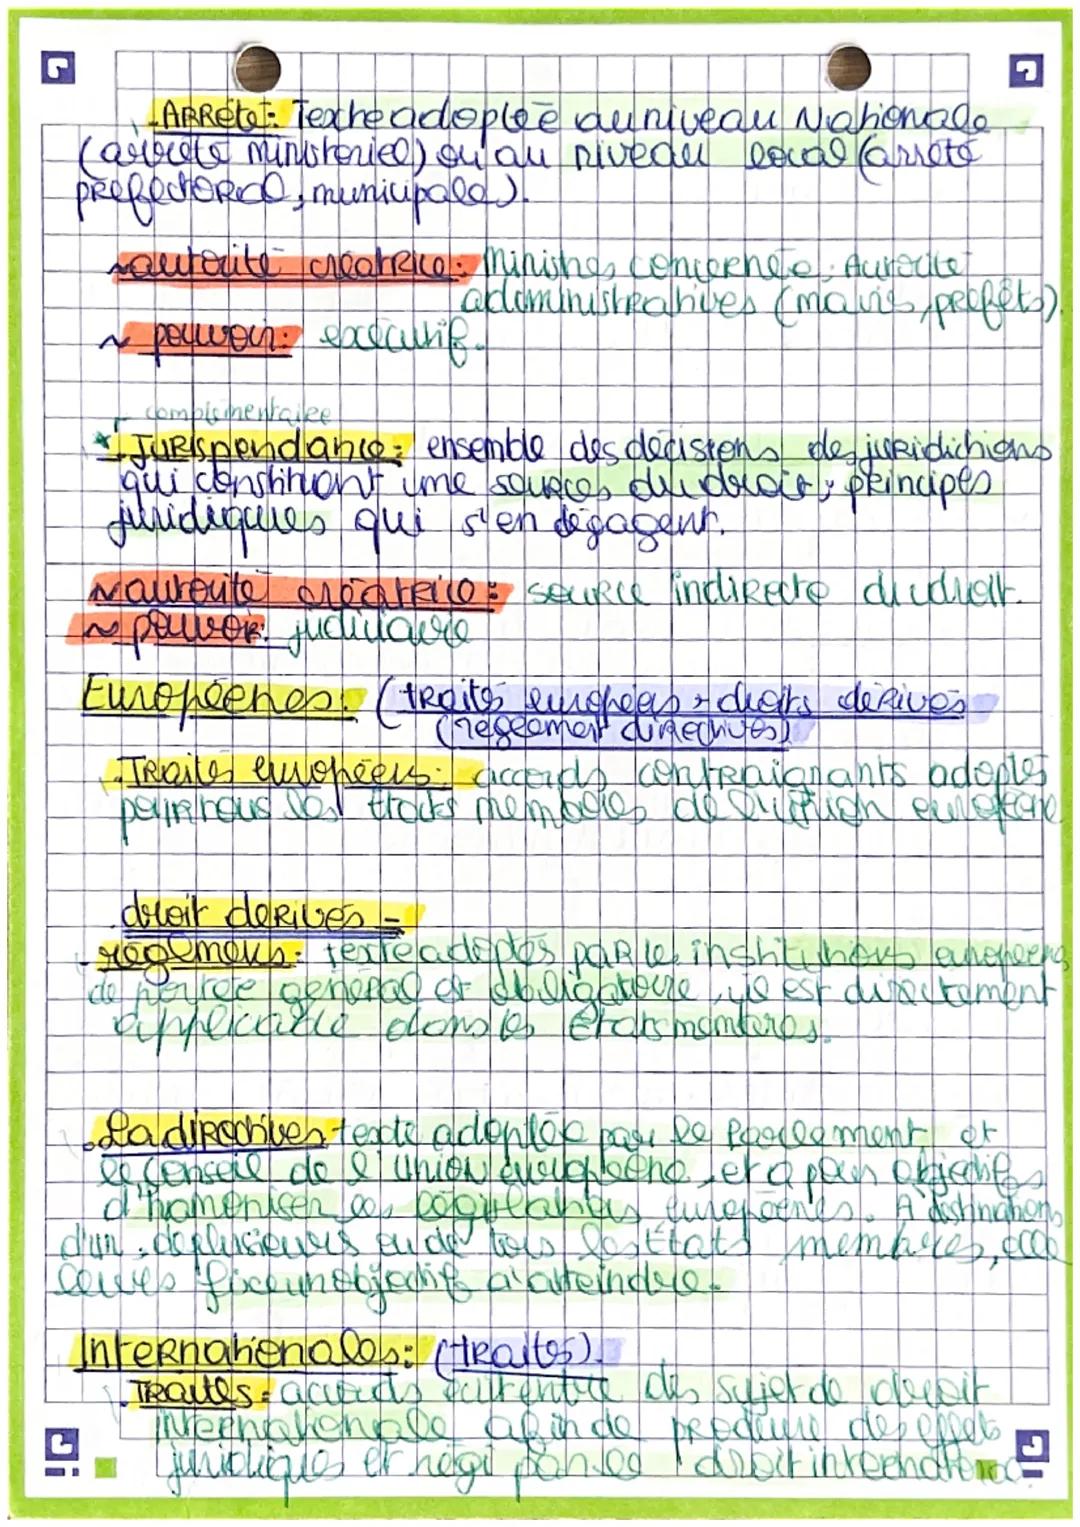 ARRété: Texte adoptée au niveau Nationale
(arrêté ministeriel) ou au niveau local (arrêté
préfectoral, municipale).
~ autorité créatrice: Ministres concernée, Autorité
administratives (mairs, préfêts).
~ pouvoir: exécutif.
complémentaire
* Jurispondance: ensemble des décisions des juridichions
qui constituent une sources du droit, principes
juridiques qui s'en dégagent.
~ autorité créatrice: source indirecte du droit.
~ pouvoir: judiciaire
Européenes: (traités européens + droits dérivés
(règlement directives)
. Traités européens: accords contraignants adoptés
pour tous les États membres de l'union européene
. droit dérivés =
- réglemens: texte adoptés par les institutions européens
de portée général et obligatoire, il est directement
applicable dans les États membres.
. La directives texte adoptée par le Parlement et
le conseil de l'Union européene, et a pour objectifs
d'harmoniser les législations européenes. A destinations
d'un, de plusieurs ou de tous les États membres, elle
leurs fixe un objectif a atteindre.
Internationales: (traités).
. Traités: accords écrit entre des sujet de droit
internationale afin de produire des effets
juridiques et régi par le droit international